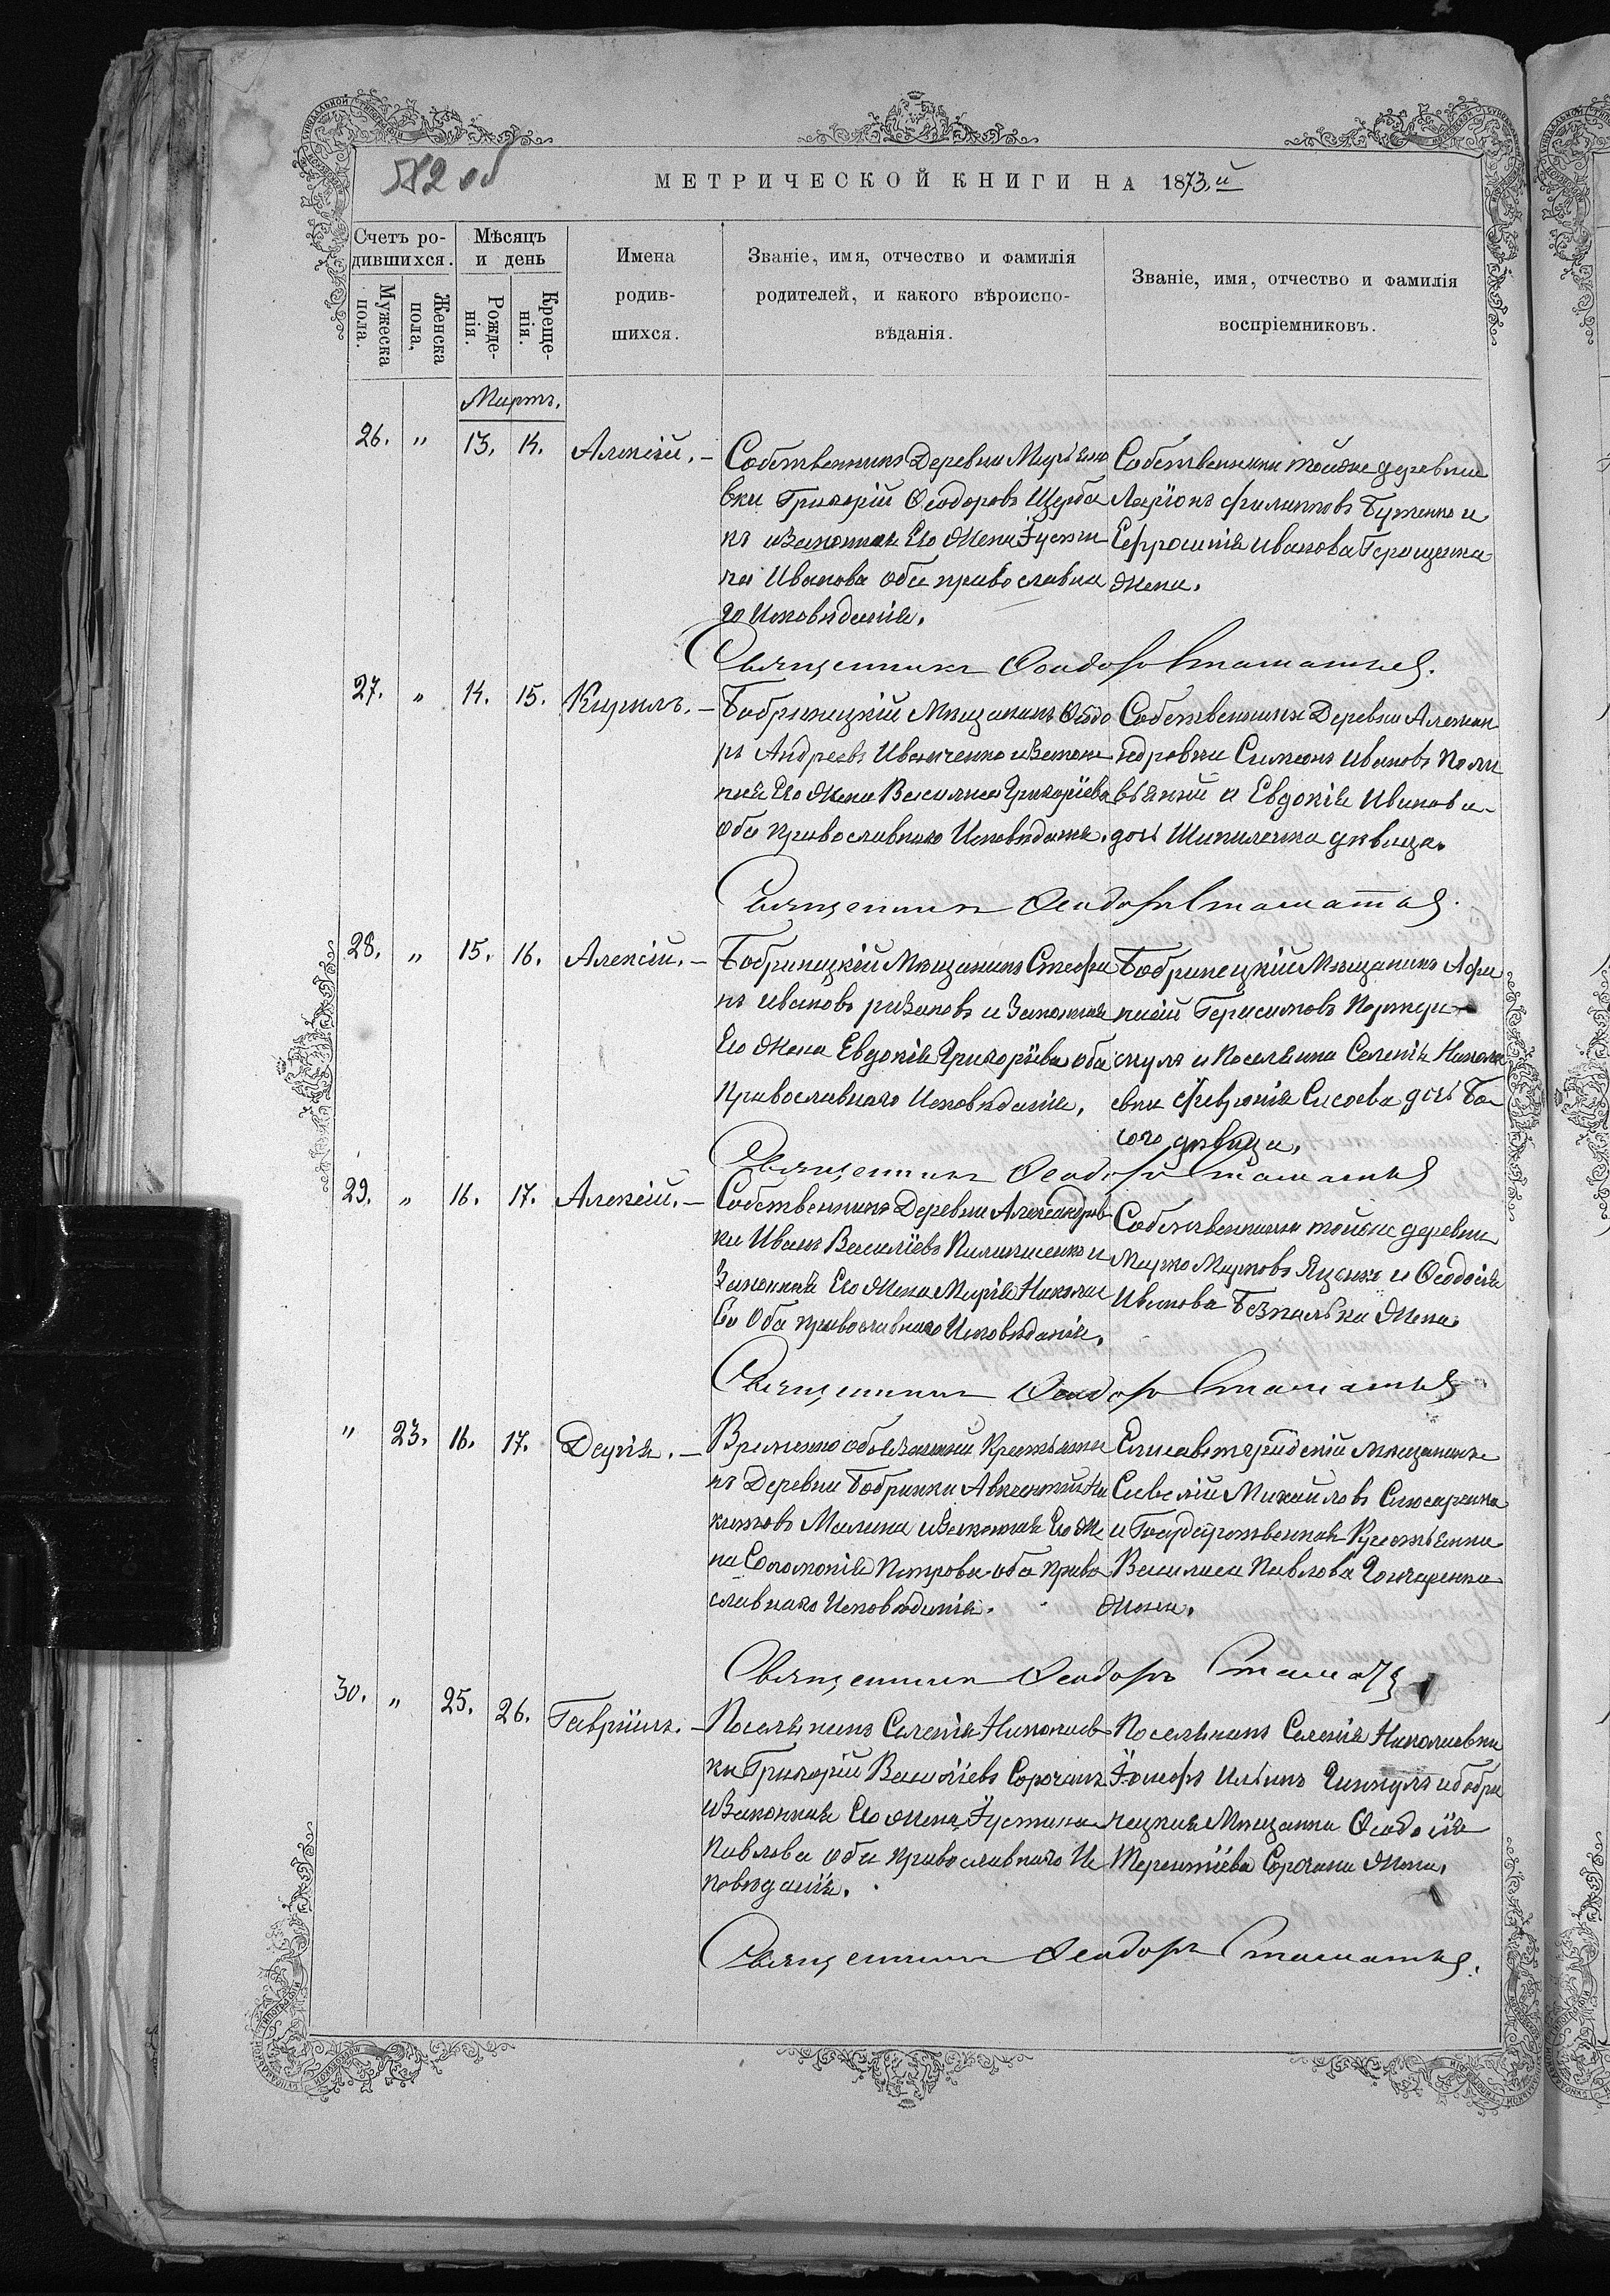 582 об
МЕТРИЧЕСКОЙ КНИГИ НА 1873.й
Счетъ ро-
дившихся.
Мужеска
пола.
Женска
пола,
Мѣсяцъ
и день
Рожде-
нія.
Креще-
нія.
Имена
родив-
шихся.
Званіе, имя, отчество и фамилія
родителей, и какого вѣроиспо-
вѣданія.
Званіе, имя, отчество и фамилія
воспріемниковъ.
Мартъ.
26. " 13. 14. Алексій. –
Собственникъ Деревни
вки Григорій Ѳеодоровъ Щерба
къ и Законная Его Жена Іусти
на Иванова оба православна
го Исповѣданія.
Собственники тойже деревни
Ларіонъ Филиповъ и
Ефросинія Иванова Геращенка
Жена.
Священникъ Ѳеодоръ
27. " 14. 15. Кирилъ. –
Бобринецкій Мѣщанинъ Ѳеодо
ръ Андреевъ Иванченко и Закон
ная Его Жена Василиса Григоріева
оба православнаго Исповѣданія.
Собственникъ Деревни Алексан
дровки Симеонъ Ивановъ
и Евдокія Иванова
дочь дѣвица.
Священникъ Ѳеодоръ
28. " 15. 16. Алексій. –
Бобринецкій Мѣщанинъ Стефа
нъ Ивановъ Рязановъ и Законная
Его Жена Евдокія Григоріева оба
Православнаго Исповѣданія.
Бобринецкій Мѣщанинъ Афа
насій Герасимовъ
и Поселянка Селенія Никола
евки Февронія Сисоева дочь Бо-
сого дѣвица.
Священникъ Ѳеодоръ
29. " 16. 17. Алексій. –
Собственникъ Деревни Александров
ки Иванъ Василіевъ Пилипшенко и
Законная Его Жена Марія Никола
ева Оба православнаго Исповѣданія.
Собственники тойже деревни
Марко Марковъ Яценко и Ѳеодосія
Иванова Безпалька Жена
Священникъ Ѳеодоръ
" 23. 16. 17. Дарія. –
Временно обязанный Крестьяни
нъ Деревни Бобринки Авксентій Ни
китовъ Малина и Законная Его Же
на Соломонія Петрова оба право
славнаго Исповѣданія.
Елисаветградскій Мѣщанинъ
Савелій Михайловъ Слюсаренко
и Государственная Крестьянка
Василиса Павлова Гончаренка
Жена.
Священникъ Ѳеодоръ
30. " 25. 26. Гавріилъ. –
Поселянинъ Селенія Николаев
ки Григорій Василіевъ Сорочанъ
и Законная Его Жена Іустина
Павлова оба православнаго Ис
повѣданія.
Поселянинъ Селенія Николаевки
Іосифъ Ильинъ и бобри
нецкая Мѣщанка Ѳеодосія
Терентіева Сорочана Жена.
Священникъ Ѳеодоръ